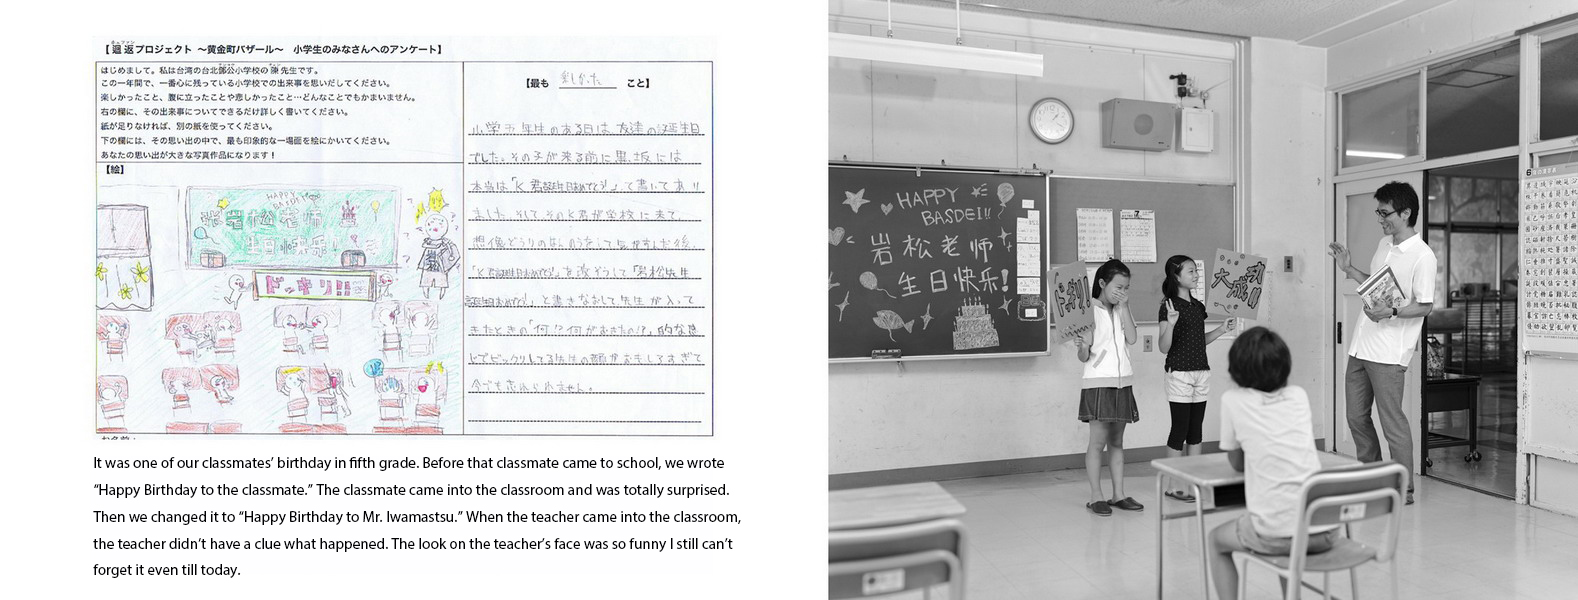 【廻返プロジェクト ～黄金町バザール～　小学生のみなさんへのアンケート】
はじめまして。私は台湾の台北鄧公小学校の陳先生です。
この一年間で、一番心に残っている小学校での出来事を思いだしてください。
楽しかったこと、腹に立ったことや悲しかったこと…どんなことでもかまいません。
右の欄に、その出来事についてできるだけ詳しく書いてください。
紙が足りなければ、別の紙を使ってください。
下の欄には、その思い出の中で、最も印象的な一場面を絵にかいてください。
あなたの思い出が大きな写真作品になります！
【絵】
HAPPY
岩松老师
生日快乐!
ドッキリ!!
【最も 楽しかった こと】
小学五年生のある日は、友達の誕生日
でした。その子が来る前に黒坂には
本当は「K君誕生日おめでとう!」って書いてあり
ました。そして、そのK君が学校に来て、
想像どうりのはんのうをして気がすんだ後、
「K君誕生日おめでとう」を
「岩松先生
誕生日おめでとう!」と書きなおして先生が入って
きたときの「何!?何がおきたの!?」的な感
じでビックリしてる先生の顔がおもしろすぎて
今でも忘れられません。
It was one of our classmates’ birthday in fifth grade. Before that classmate came to school, we wrote
“Happy Birthday to the classmate.” The classmate came into the classroom and was totally surprised.
Then we changed it to “Happy Birthday to Mr. Iwamastsu.” When the teacher came into the classroom,
the teacher didn’t have a clue what happened. The look on the teacher’s face was so funny I still can’t
forget it even till today.
HAPPY
BASDEI!!
岩松老师
生日快乐!
ドッキリ!
大成功